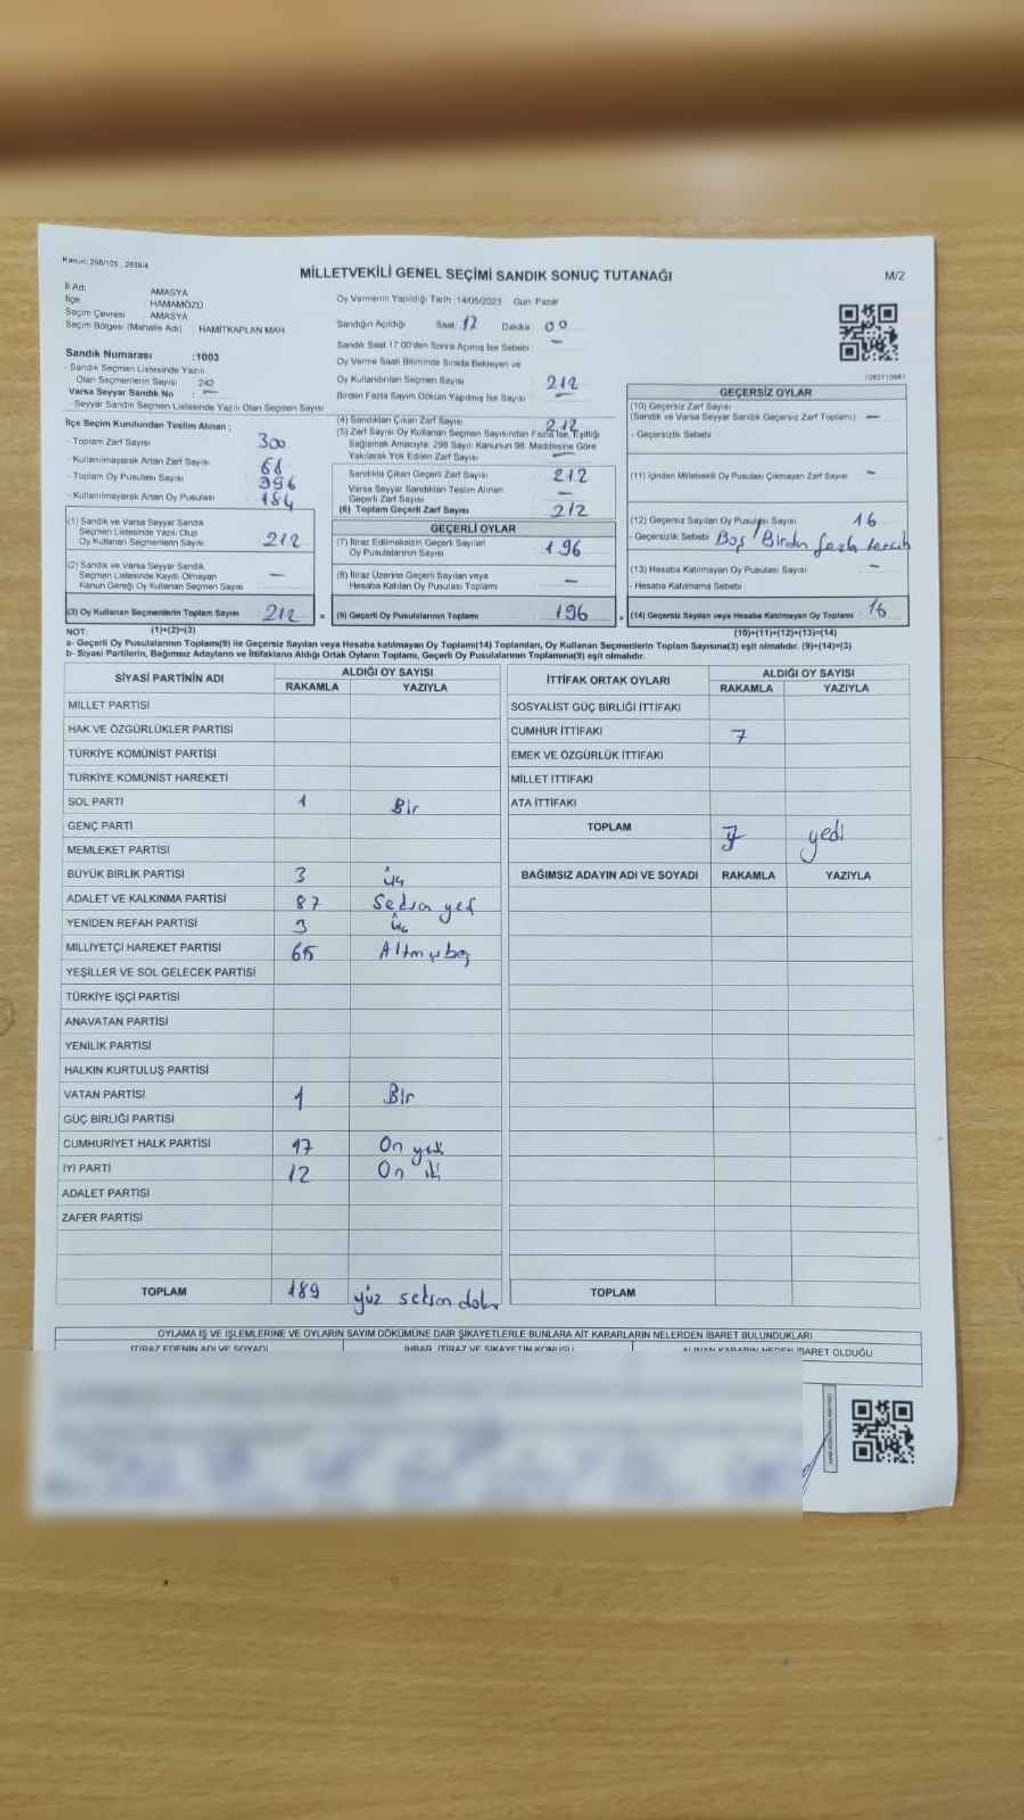 MİLLETVEKİLİ GENEL SEÇİMİ SANDIK SONUÇ TUTANAĞI
M/2
İl Adı AMASYA
İlçe HAMAMÖZÜ
Seçim Çevresi AMASYA
Seçim Bölgesi (Mahalle Adı) HAMİTKAPLAN MAH
Oy Vermenin Yapıldığı Tarih :14/05/2023 Gün: Pazar
Sandığın Açıldığı Saat: 17 Dakika 00
Sandık Saat 17:00'den Sonra Açılmış İse Sebebi : —
Oy Verme Saati Bitiminde Sırada Bekleyen ve
Oy Kullandırılan Seçmen Sayısı 212
Birden Fazla Sayım Döküm Yapılmış İse Sayısı : —
Sandık Numarası :1003
- Sandık Seçmen Listesinde Yazılı
Olan Seçmenlerin Sayısı 242
Varsa Seyyar Sandık No : —
Seyyar Sandık Seçmen Listesinde Yazılı Olan Seçmen Sayısı
İlçe Seçim Kurulundan Teslim Alınan ;
- Toplam Zarf Sayısı 300
- Kullanılmayarak Artan Zarf Sayısı
- Toplam Oy Pusulası Sayısı 396
- Kullanılmayarak Artan Oy Pusulası 184
(1) Sandık ve Varsa Seyyar Sandık
Seçmen Listesinde Yazılı Olup
Oy Kullanan Seçmenlerin Sayısı 212
(2) Sandık ve Varsa Seyyar Sandık
Seçmen Listesinde Kaydı Olmayan
Kanun Gereği Oy Kullanan Seçmen Sayısı —
(3) Oy Kullanan Seçmenlerin Toplam Sayısı 212 =
(1)+(2)=(3)
(4) Sandıktan Çıkan Zarf Sayısı 212
(5) Zarf Sayısı Oy Kullanan Seçmen Sayısından Fazla İse, Eşitliği
Sağlamak Amacıyla, 298 Sayılı Kanunun 98. Maddesine Göre
Yakılarak Yok Edilen Zarf Sayısı —
Sandıkta Çıkan Geçerli Zarf Sayısı 212
Varsa Seyyar Sandıktan Teslim Alınan
Geçerli Zarf Sayısı —
(6) Toplam Geçerli Zarf Sayısı 212
GEÇERLİ OYLAR
(7) İtiraz Edilmeksizin Geçerli Sayılan
Oy Pusulalarının Sayısı 196
(8) İtiraz Üzerine Geçerli Sayılan veya
Hesaba Katılan Oy Pusulası Toplamı —
(9) Geçerli Oy Pusulalarının Toplamı 196 +
GEÇERSİZ OYLAR
(10) Geçersiz Zarf Sayısı
(Sandık ve Varsa Seyyar Sandık Geçersiz Zarf Toplamı) —
- Geçersizlik Sebebi
(11) İçinden Milletvekili Oy Pusulası Çıkmayan Zarf Sayısı —
(12) Geçersiz Sayılan Oy Pusulası Sayısı 16
- Geçersizlik Sebebi Boş / Birden fazla tercih
(13) Hesaba Katılmayan Oy Pusulası Sayısı —
- Hesaba Katılmama Sebebi
(14) Geçersiz Sayılan veya Hesaba Katılmayan Oy Toplamı 16
(10)+(11)+(12)+(13)=(14)
NOT:
a- Geçerli Oy Pusulalarının Toplamı(9) ile Geçersiz Sayılan veya Hesaba katılmayan Oy Toplamı(14) Toplamları, Oy Kullanan Seçmenlerin Toplam Sayısına(3) eşit olmalıdır. (9)+(14)=(3)
b- Siyasi Partilerin, Bağımsız Adayların ve İttifakların Aldığı Ortak Oyların Toplamı, Geçerli Oy Pusulalarının Toplamına(9) eşit olmalıdır.
SİYASİ PARTİNİN ADI ALDIĞI OY SAYISI
RAKAMLA YAZIYLA
MİLLET PARTİSİ
HAK VE ÖZGÜRLÜKLER PARTİSİ
TÜRKİYE KOMÜNİST PARTİSİ
TÜRKİYE KOMÜNİST HAREKETİ
SOL PARTİ 1 Bir
GENÇ PARTİ
MEMLEKET PARTİSİ
BÜYÜK BİRLİK PARTİSİ 3 üç
ADALET VE KALKINMA PARTİSİ 87 Seksen yedi
YENİDEN REFAH PARTİSİ 3 üç
MİLLİYETÇİ HAREKET PARTİSİ 65 Altmışbeş
YEŞİLLER VE SOL GELECEK PARTİSİ
TÜRKİYE İŞÇİ PARTİSİ
ANAVATAN PARTİSİ
YENİLİK PARTİSİ
HALKIN KURTULUŞ PARTİSİ
VATAN PARTİSİ 1 Bir
GÜÇ BİRLİĞİ PARTİSİ
CUMHURİYET HALK PARTİSİ 17 On yedi
İYİ PARTİ 12 On iki
ADALET PARTİSİ
ZAFER PARTİSİ
TOPLAM 189 yüz seksen dokuz
İTTİFAK ORTAK OYLARI ALDIĞI OY SAYISI
RAKAMLA YAZIYLA
SOSYALİST GÜÇ BİRLİĞİ İTTİFAKI
CUMHUR İTTİFAKI 7
EMEK VE ÖZGÜRLÜK İTTİFAKI
MİLLET İTTİFAKI
ATA İTTİFAKI
TOPLAM 7 yedi
BAĞIMSIZ ADAYIN ADI VE SOYADI RAKAMLA YAZIYLA
TOPLAM
OYLAMA İŞ VE İŞLEMLERİNE VE OYLARIN SAYIM DÖKÜMÜNE DAİR ŞİKAYETLERLE BUNLARA AİT KARARLARIN NELERDEN İBARET BULUNDUKLARI
İTİRAZ EDENİN ADI VE SOYADI İHBAR, İTİRAZ VE ŞİKAYETİN KONUSU ALINAN KARARIN NEDEN İBARET OLDUĞU